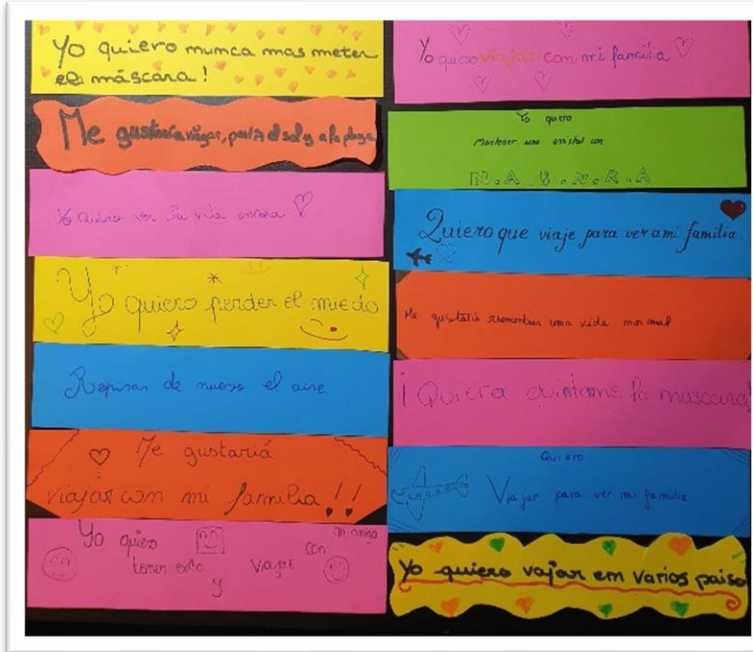 Yo quiero munca mas meter
ela máscara!
Me gustaría viagar, para el sol y a la playa
Yo quiero ver su vida
Yo quiero perder el miedo
Respirar de nuevo el aire
Me gustariá
viajar con mi familia!!
Yo quiero
tener exito
y
viajar
con
mi amiga
Yo quiero viajar con mi familia
Yo quiero
Mantener una amistad con
N.A.B.N.R.A
Quiero que viaje para ver a mi familia
Me gustaría una vida normal
¡Quiera quintame la mascara!
Quiero
Viajar para ver mi familia
Yo quiero vajar em varios paiso